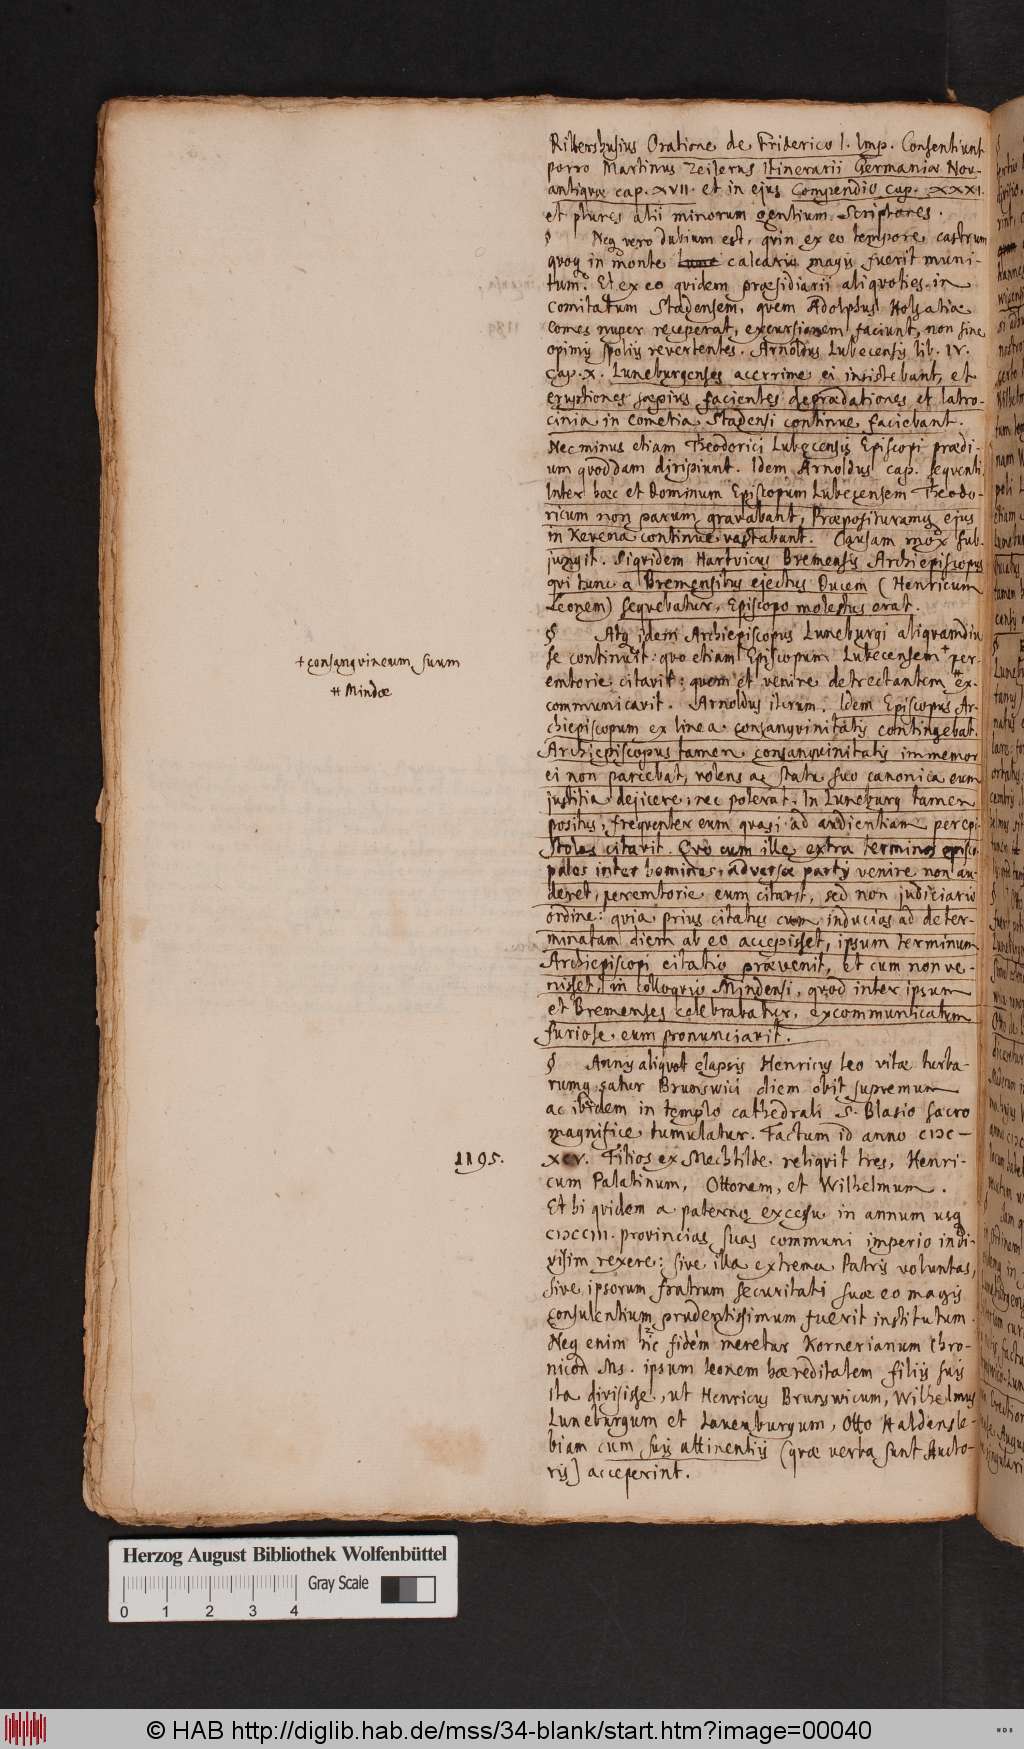 Rittershusius Oratione de Friderico I. Imp. Consentiunt
porro Martinus Zeilerus Itinerarii Germaniæ Nov-
antiquæ cap. XVII. et in ejus Compendio cap. XXXI.
et plures alii minorum gentium Scriptores.
§ Neq vero dubium est, quin ex eo tempore castrum
quoq in monte Lune calcario magis fuerit muni-
tum. Et ex eo quidem præsidiarii aliquoties in
Comitatum Stadensem, quem Adolphus Holsatiæ
Comes nuper receperat, excursionem faciunt, non sine
opimis spoliis revertentes. Arnoldus Lubecensis lib. IV.
cap. X. Luneburgenses acerrime ei insistebant, et
eruptiones sæpius facientes deprædationes et latro-
cinia in Cometia Stadensi continue faciebant.
Nec minus etiam Theodorici Lubecensis Episcopi prædi-
um quoddam diripiunt. Idem Arnoldus cap. sequenti.
Inter hæc et Dominum Episcopum Lubecensem Theodo-
ricum non parum gravabant, Præposituramq ejus
in Kevena continue vastabant. Causam mox sub-
jungit. Siquidem Hartvicus Bremensis Archiepiscopus
qui tunc a Bremensibus ejectus Ducem (Henricum
Leonem) sequebatur, Episcopo molestus erat.
§ Atq idem Archiepiscopus Luneburgi aliquamdiu
se continuit: quo etiam Episcopum Lubecensem + per-
emtorie citavit: quem et venire detrectantem # ex-
communicavit. Arnoldus iterum. Idem Episcopus Ar-
chiepiscopum ex linea consanguinitatis contingebat.
Archiepiscopus tamen consanguinitatis immemor
ei non parcebat, volens ac statu suo canonica eum
justitia dejicere, nec poterat. In Luneburg tamen
positus, frequenter eum quasi ad audientiam per epi-
stolas citavit. Quo cum ille extra terminos episco-
pales inter homines adversæ partis venire non au-
deret, peremtorie eum citavit, sed non judiciario
ordine: quia prius citatus cum inducias ad deter-
minatam diem ab eo accepisset, ipsum terminum
Archiepiscopi citatio prævenit, et cum non ve-
nisset, in colloquio Mindensi, quod inter ipsum
et Bremenses celebrabatur, excommunicatum
furiose eum pronunciavit.
§ Annis aliquot elapsis Henricus Leo vitæ turba-
rumq satur Brunswici diem obit supremum
ac ibidem in templo cathedrali S. Blasio sacro
magnifice tumulatur. Factum id anno CIƆC-
XCV. Filios ex Mechtilde reliquit tres, Henri-
cum Palatinum, Ottonem, et Wilhelmum.
Et hi quidem a paterno excessu in annum usq
CIƆCCIII. provincias suas communi imperio indi-
visim rexere: sive illa extrema Patris voluntas,
sive ipsorum fratrum securitati suæ eo magis
consulentium prudentissimum fuerit institutum.
Neq enim hic fidem meretur Kornerianum Chro-
nicon Ms. ipsum Leonem hæreditatem filiis suis
ita divisisse, ut Henricus Brunswicum, Wilhelmus
Luneburgum et Lauenburgum, Otto Haldensle-
biam cum suis attinentiis (quæ verba sunt Aucto-
ris) acceperint.
+ consanguineum suum
# Mindæ
1195.
Herzog August Bibliothek Wolfenbüttel
Gray Scale
0 1 2 3 4
© HAB http://diglib.hab.de/mss/34-blank/start.htm?image=00040